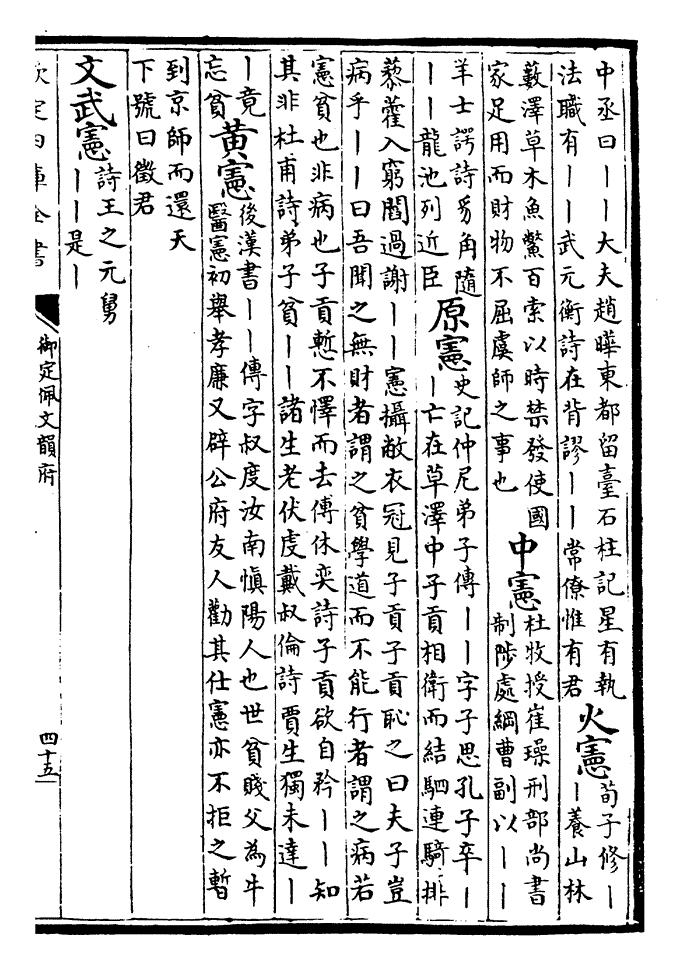 中丞曰――大夫趙曄東都留臺石柱記星有執
法職有――武元衡詩在背謬――常僚惟有君
火憲
荀子修―
―養山林
藪澤草木魚鱉百索以時禁發使國
家足用而財物不屈虞師之事也
中憲
杜牧授崔璪刑部尚書
制陟處綱曹副以――
羊士諤詩豸角隨
――龍池列近臣
原憲
史記仲尼弟子傳――字子思孔子卒―
―亡在草澤中子貢相衛而結駟連騎排
藜藿入窮閻過謝――憲攝敝衣冠見子貢子貢恥之曰夫子豈
病乎――曰吾聞之無財者謂之貧學道而不能行者謂之病若
憲貧也非病也子貢慙不懌而去傅休奕詩子貢欲自矜――知
其非杜甫詩弟子貧――諸生老伏虔戴叔倫詩賈生獨未達―
―竟
忘貧
黃憲
後漢書――傳字叔度汝南慎陽人也世貧賤父為牛
醫憲初舉孝廉又辟公府友人勸其仕憲亦不拒之暫
到京師而還天
下號曰徵君
文武憲
詩王之元舅
――是―
欽定四庫全書
御定佩文韻府
四十五